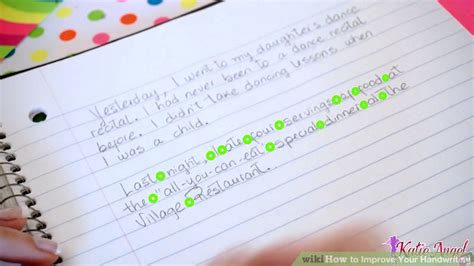 Yesterday, I went to my daughter's dance
recital. I had never been to a dance recital
before. I didn't take dancing lessons when
I was a child.
Last night, I ate four servings of food at
the "all-you-can-eat" special dinner at the
Village Restaurant.
Katie Angel
wikiHow to Improve Your Handwriting